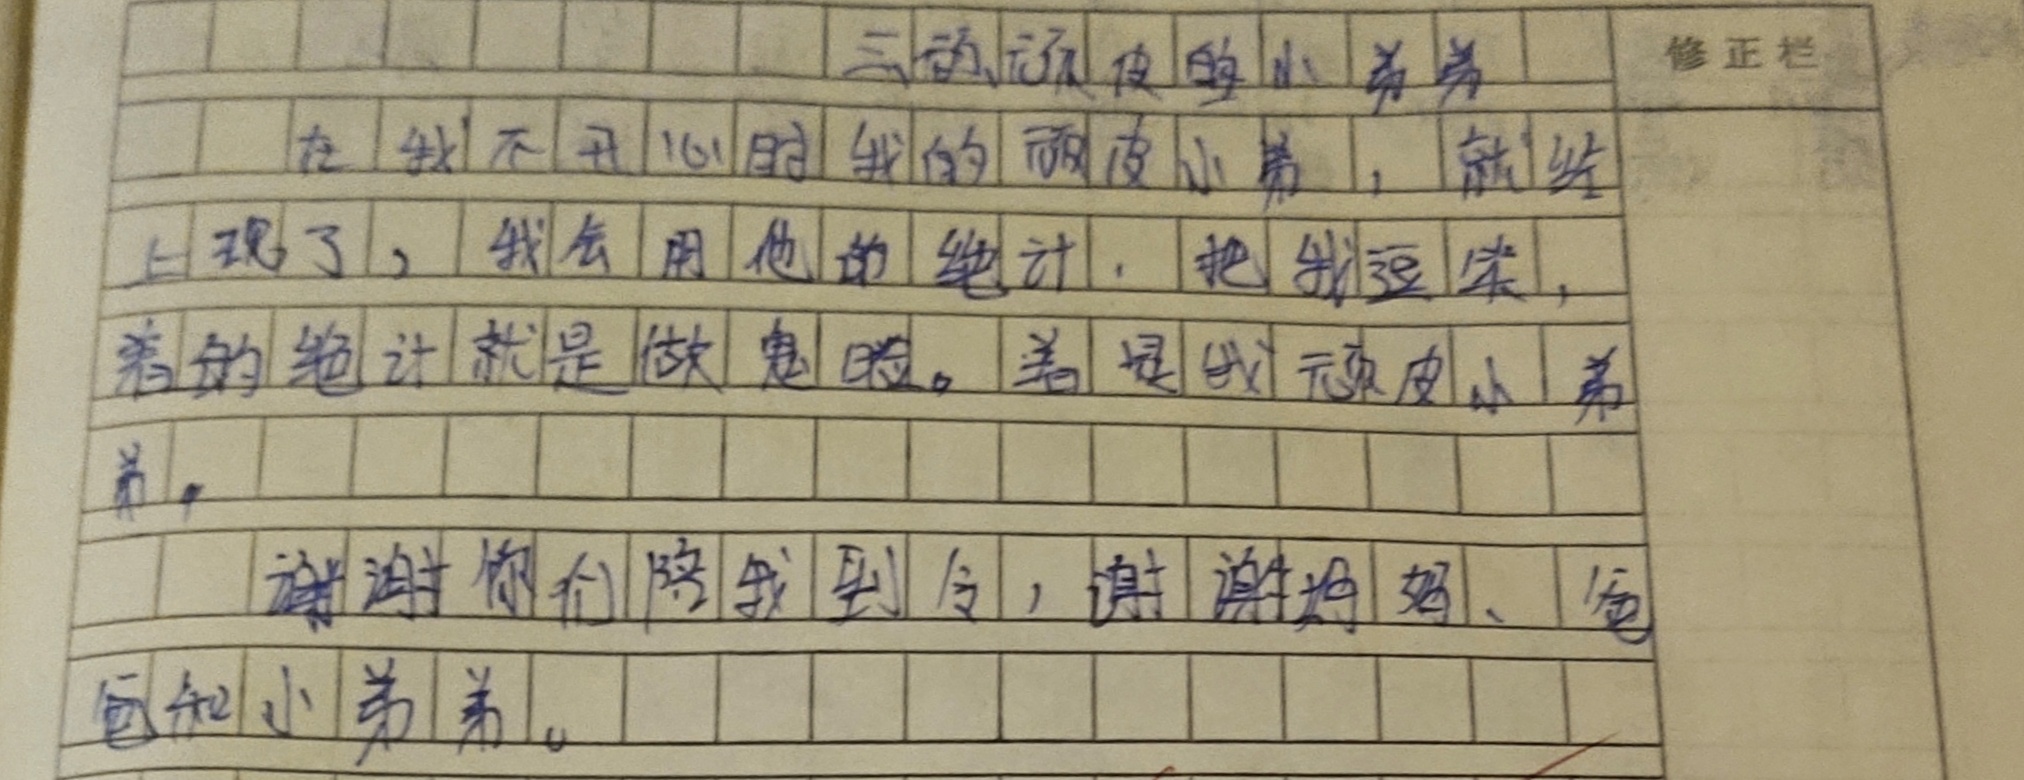 三、顽皮的小弟弟
修正栏
在我不开心时我的顽皮小弟，就
上现了，我会用他的绝计．把我逗
的绝计就是做鬼脸。是我顽皮小弟
弟，
谢谢你们陪我到今，谢谢妈妈、爸
爸和小弟弟。